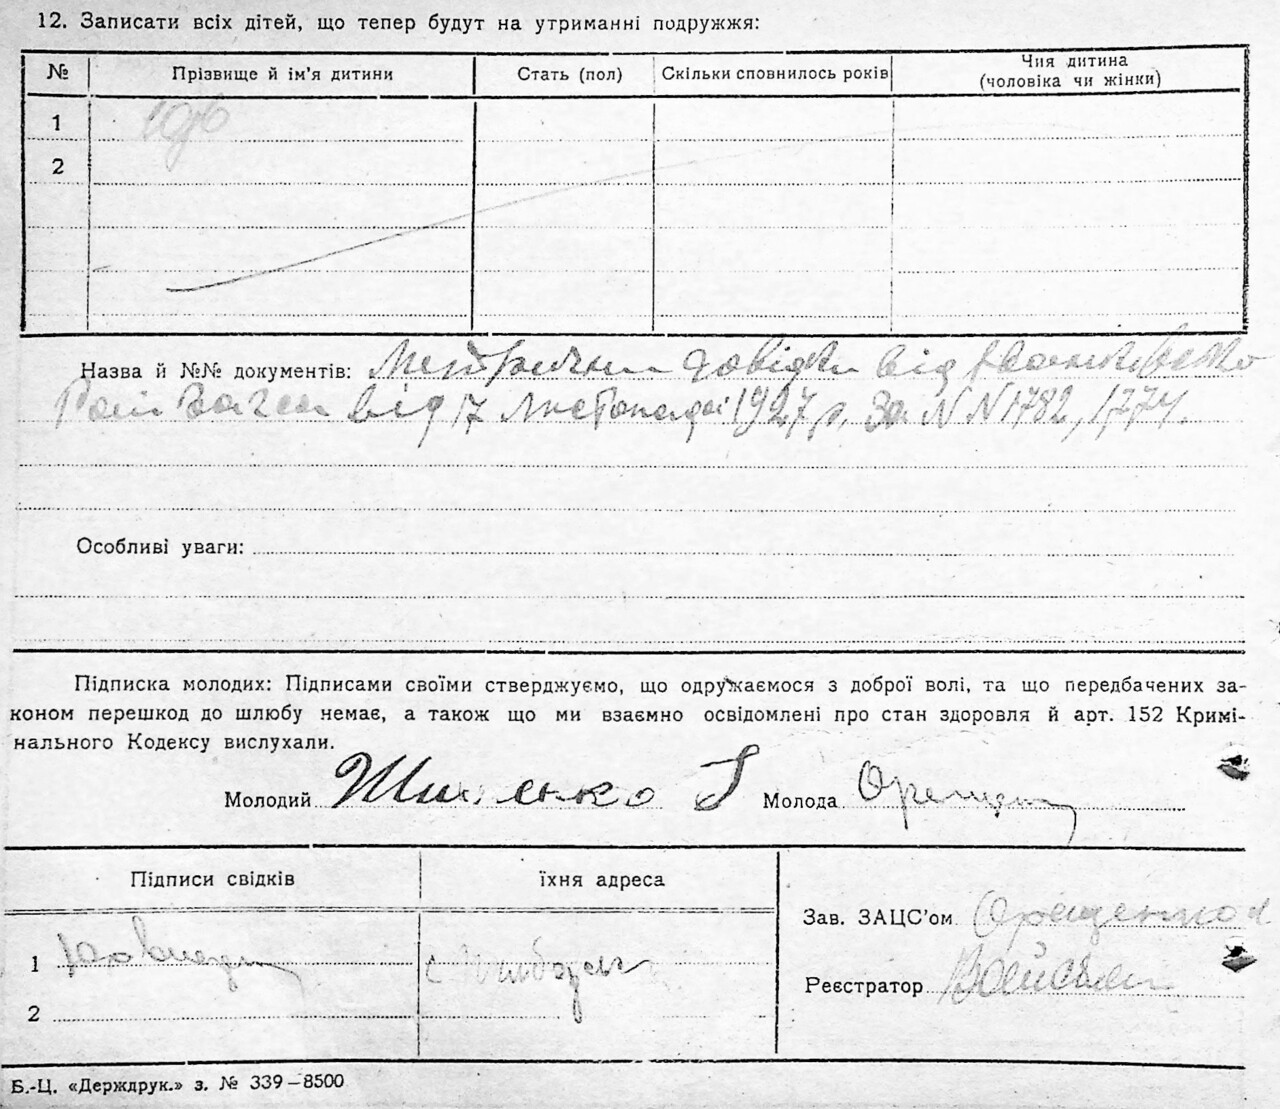 12. Записати всіх дітей, що тепер будут на утриманні подружжя:
№ Прізвище й ім'я дитини Стать (пол) Скільки сповнилось років Чия дитина (чоловіка чи жінки)
1
2
Назва й №№ документів: Метричні довідки від
від 17 Листопада 1927 р. за N N 1782, 1774.
Особливі уваги:
Підписка молодих: Підписами своїми стверджуємо, що одружаємося з доброї волі, та що передбачених за-
коном перешкод до шлюбу немає, а також що ми взаємно освідомлені про стан здоровля й арт. 152 Кримі-
нального Кодексу вислухали.
Молодий Молода
Підписи свідків їхня адреса
Зав. ЗАЦС'ом Орещенко
1
Реєстратор
2
Б.-Ц. «Держдрук.» з. № 339–8500